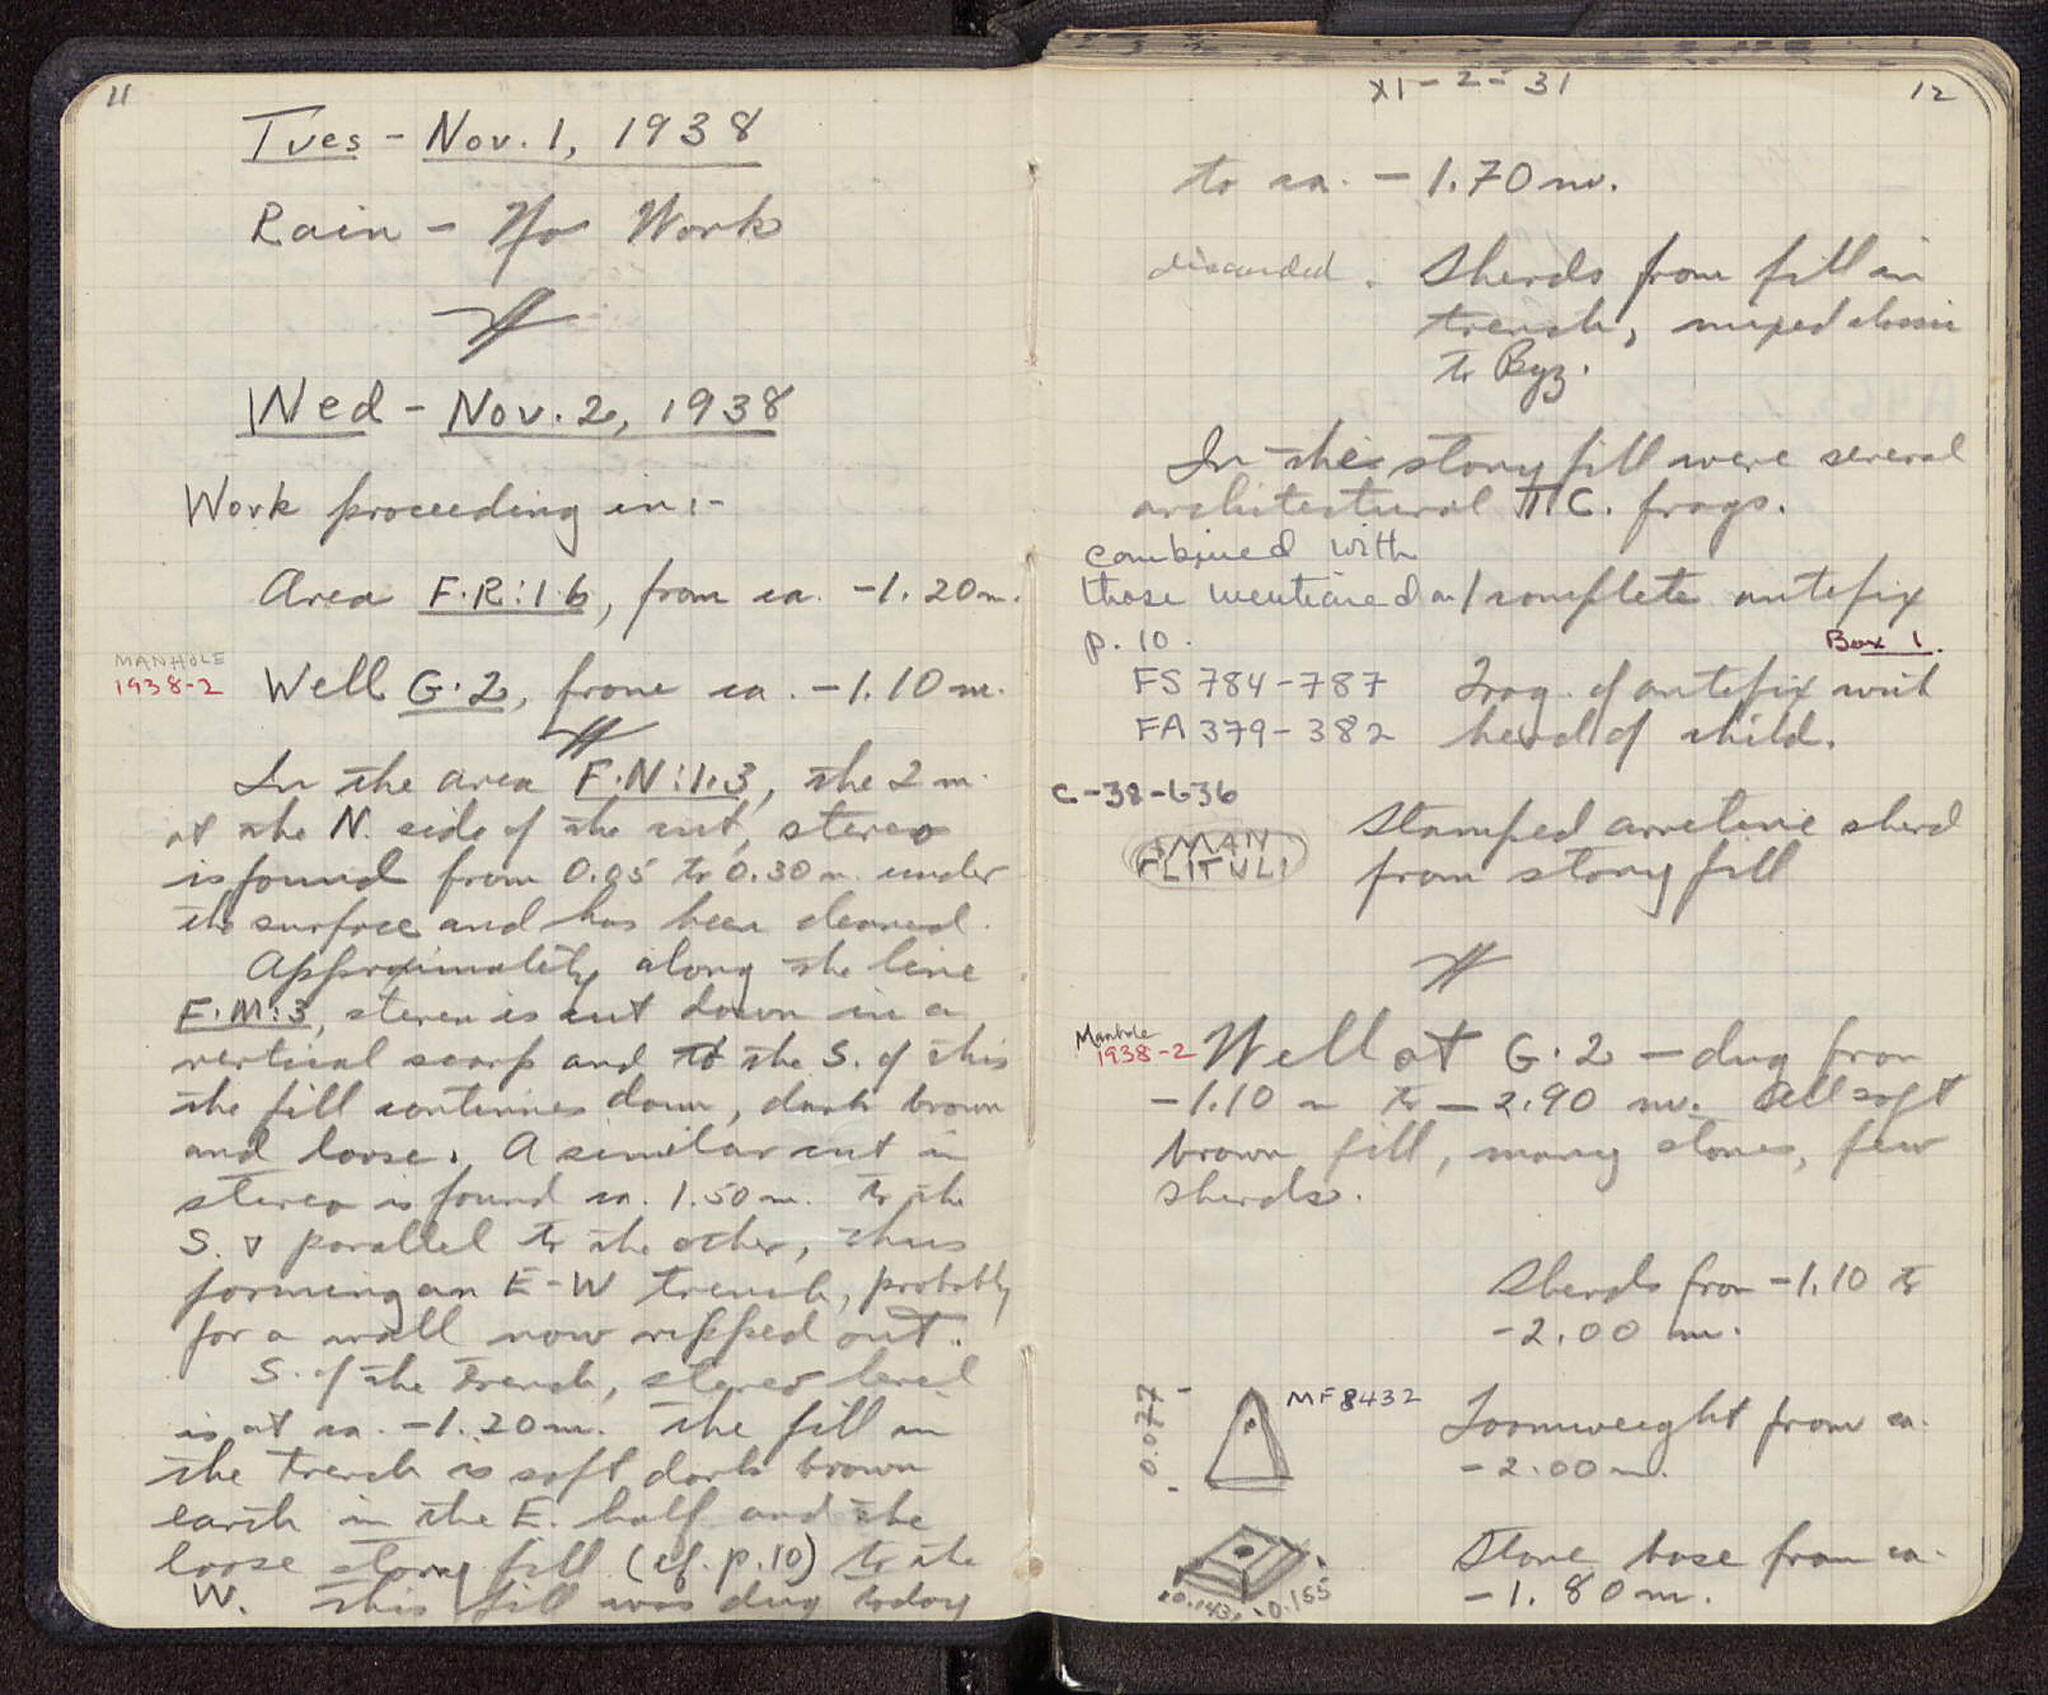 11
Tues - Nov. 1, 1938
Rain - No Work
Wed - Nov. 2, 1938
Work proceeding in:-
Area F.R:1.6, from ca. -1.20m.
MANHOLE
1938-2
Well G.2, from ca. -1.10m.
In the area F.N:1.3, the 2 m.
at the N. side of the cut, stereo
is found from 0.05 to 0.30m. under
the surface and has been cleared.
Approximately along the line
F.M:3, stereo is cut down in a
vertical scarp and to the S. of this
the fill continues down, dark brown
and loose. A similar cut in
stereo is found ca. 1.50m. to the
S. & parallel to the other, thus
forming an E-W trench, probably
for a wall now ripped out.
S. of the trench, stereo level
is at ca. -1.20m. The fill in
the trench is soft dark brown
earth in the E. half and the
loose stony fill (cf. p.10) to the
W. This fill was dug today
XI-2-31
12
to ca. -1.70m.
discarded.
Sherds from fill in
trench, mixed classic
to Byz.
In the stony fill were several
architectural TC. frags.
combined with
those mentioned on
p. 10.
1 complete antefix
Box 1.
FS 784-787
FA 379-382
Frag. of antefix with
head of child.
C-38-636
AMAN
LITULI
Stamped arretine sherd
from stony fill
Manhole
1938-2
Well at G.2 - dug from
-1.10m to -2.90 m. All soft
brown fill, many stones, few
sherds.
Sherds from -1.10 to
-2.00 m.
0.077
MF8432
Loomweight from ca.
-2.00m.
0.143
0.155
Stone base from ca.
-1.80m.